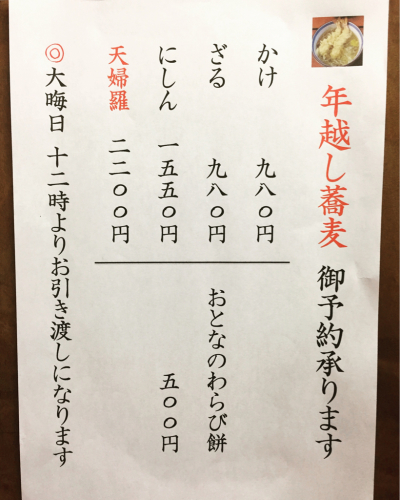 年越し蕎麦 御予約承ります
かけ 九八〇円
ざる 九八〇円
にしん 一五五〇円
天婦羅 二二〇〇円
おとなのわらび餅
五〇〇円
◎大晦日 十二時よりお引き渡しになります